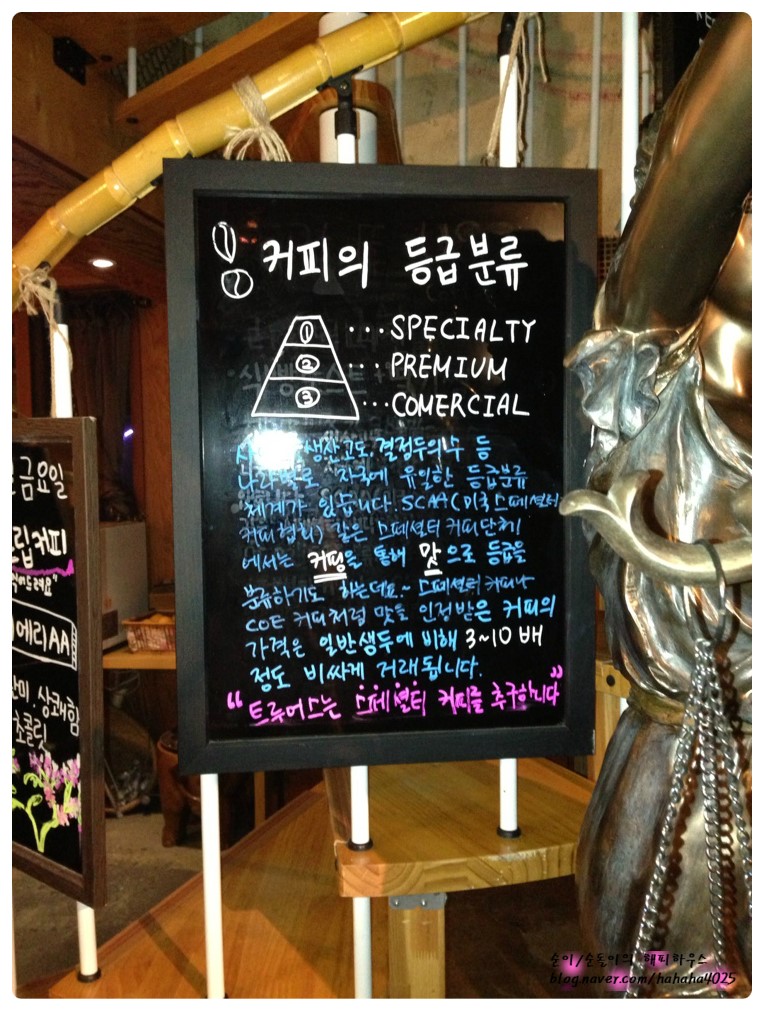 커피의 등급분류
① ... SPECIALTY
② ... PREMIUM
③ ... COMERCIAL
생산고도, 결점두의수 등
나라별로 자국에 유일한 등급분류
체계가 있습니다. SCAA(미국스페셜티
커피협회) 같은 스페셜티 커피단체
에서는 커핑을 통해 맛으로 등급을
분류하기도 하는데요~ 스페셜티 커피나
COE 커피처럼 맛을 인정받은 커피의
가격은 일반생두에 비해 3~10 배
정도 비싸게 거래됩니다.
“트루어스는 스페셜티 커피를 추구합니다”
금요일
립커피
에리AA
미, 상쾌함
초콜릿
순이/순돌이의 해피하우스
blog.naver.com/hahaha4025